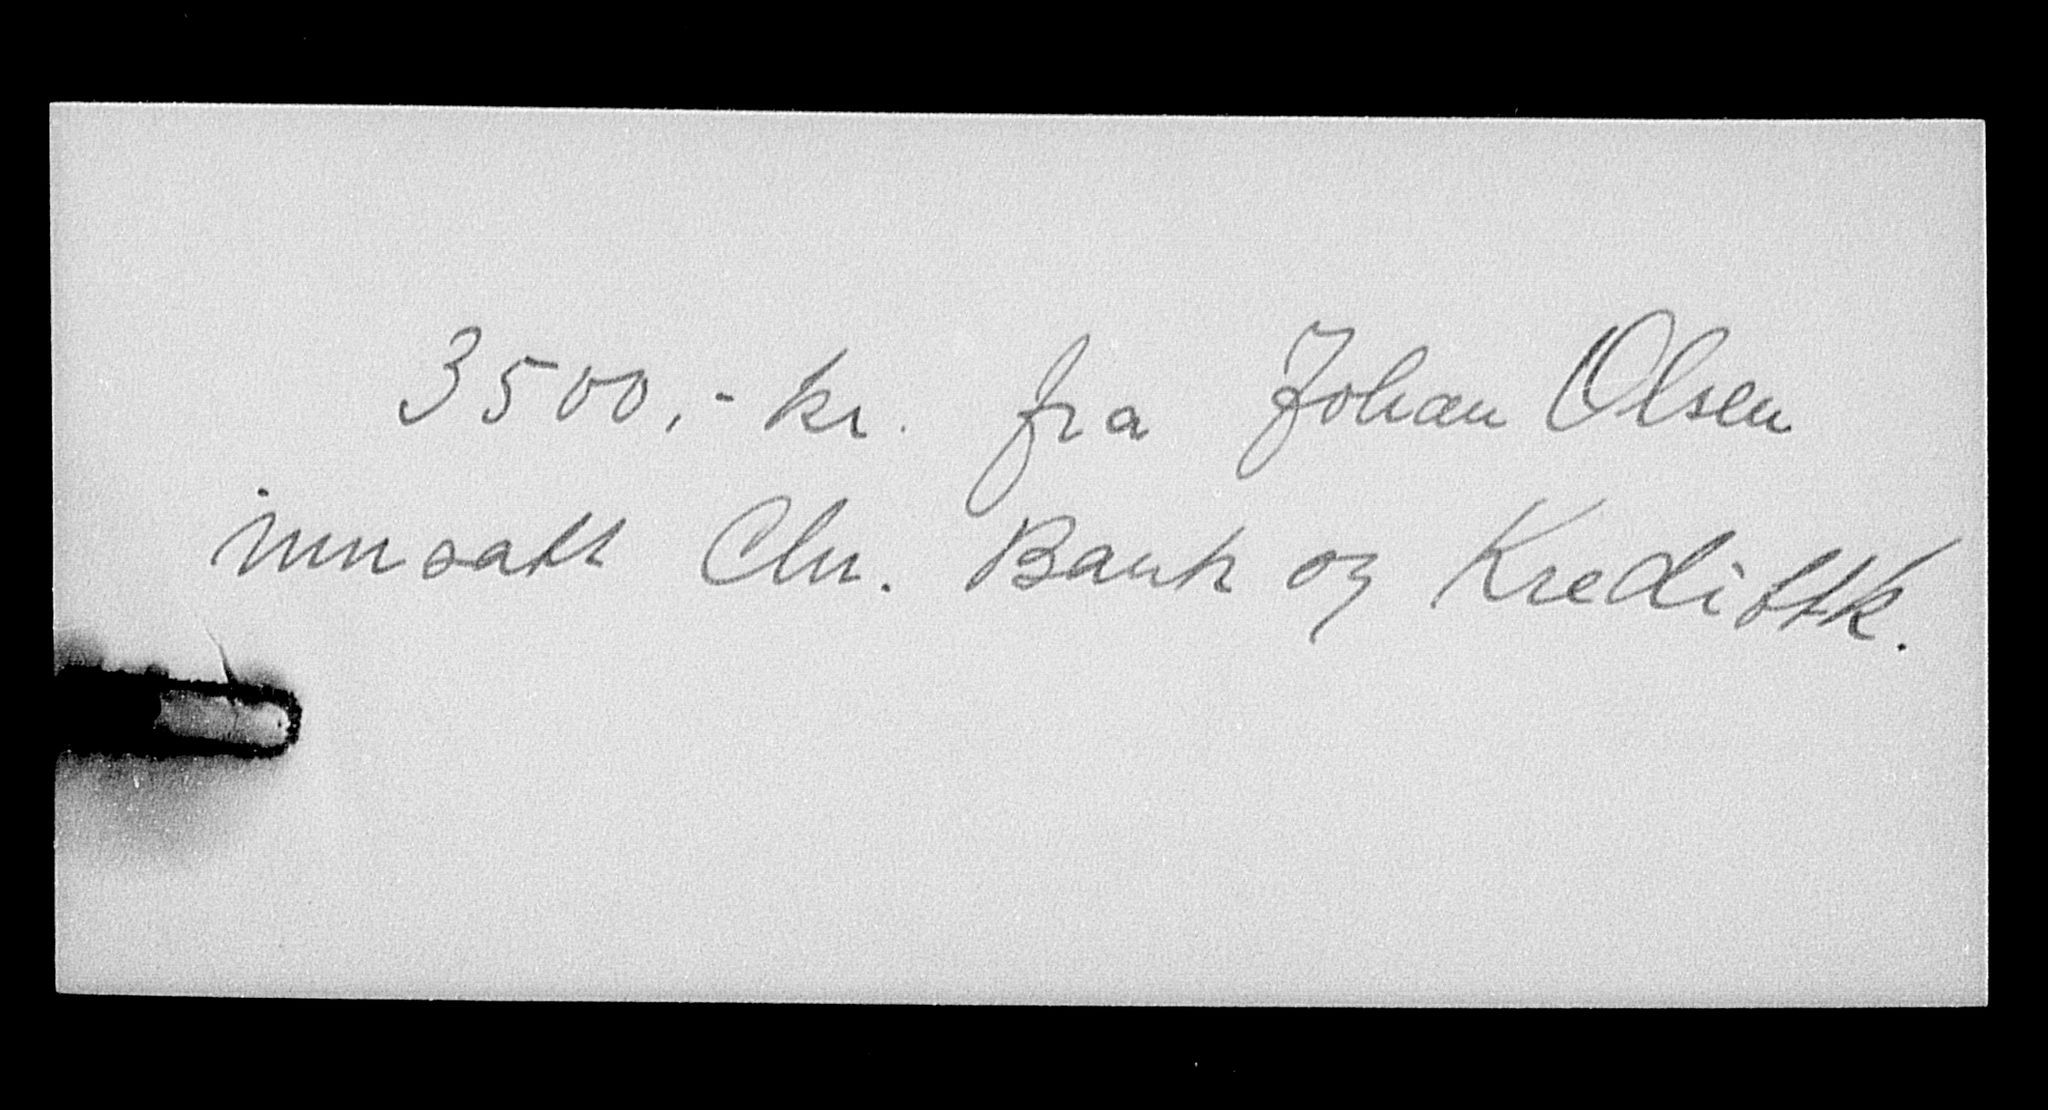 3500,- kr. fra Johan Olsen
innsatt Chr. Bank og Kredittk.